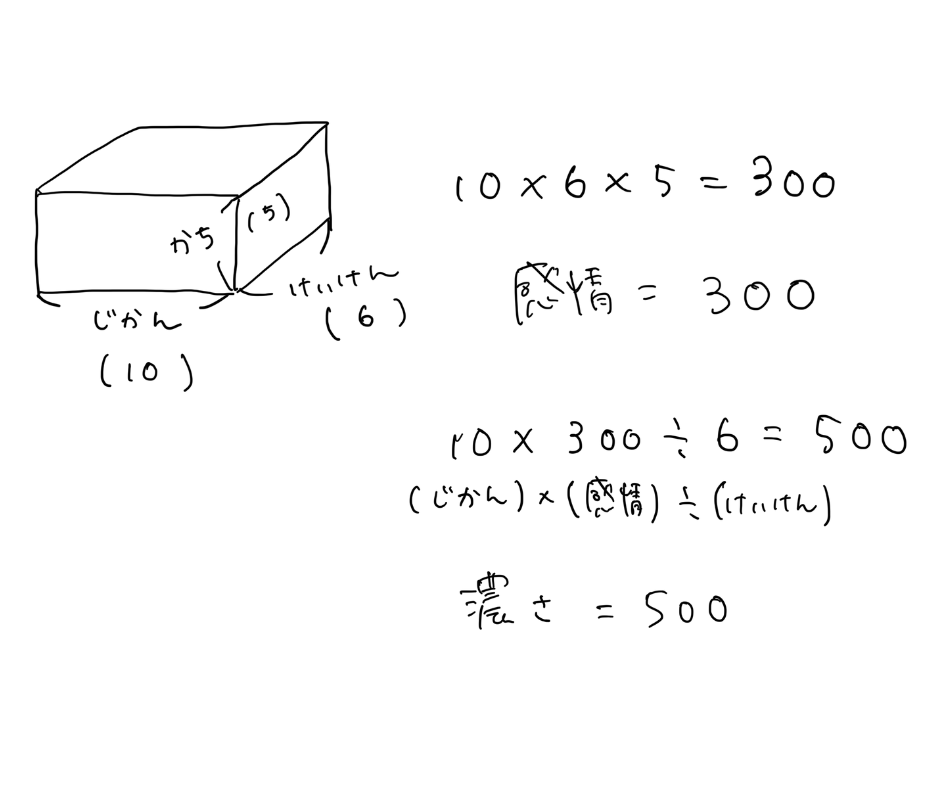 かち
(5)
じかん
(10)
けいけん
(6)
10×6×5=300
感情=300
10×300÷6=500
(じかん)×(感情)÷(けいけん)
濃さ=500